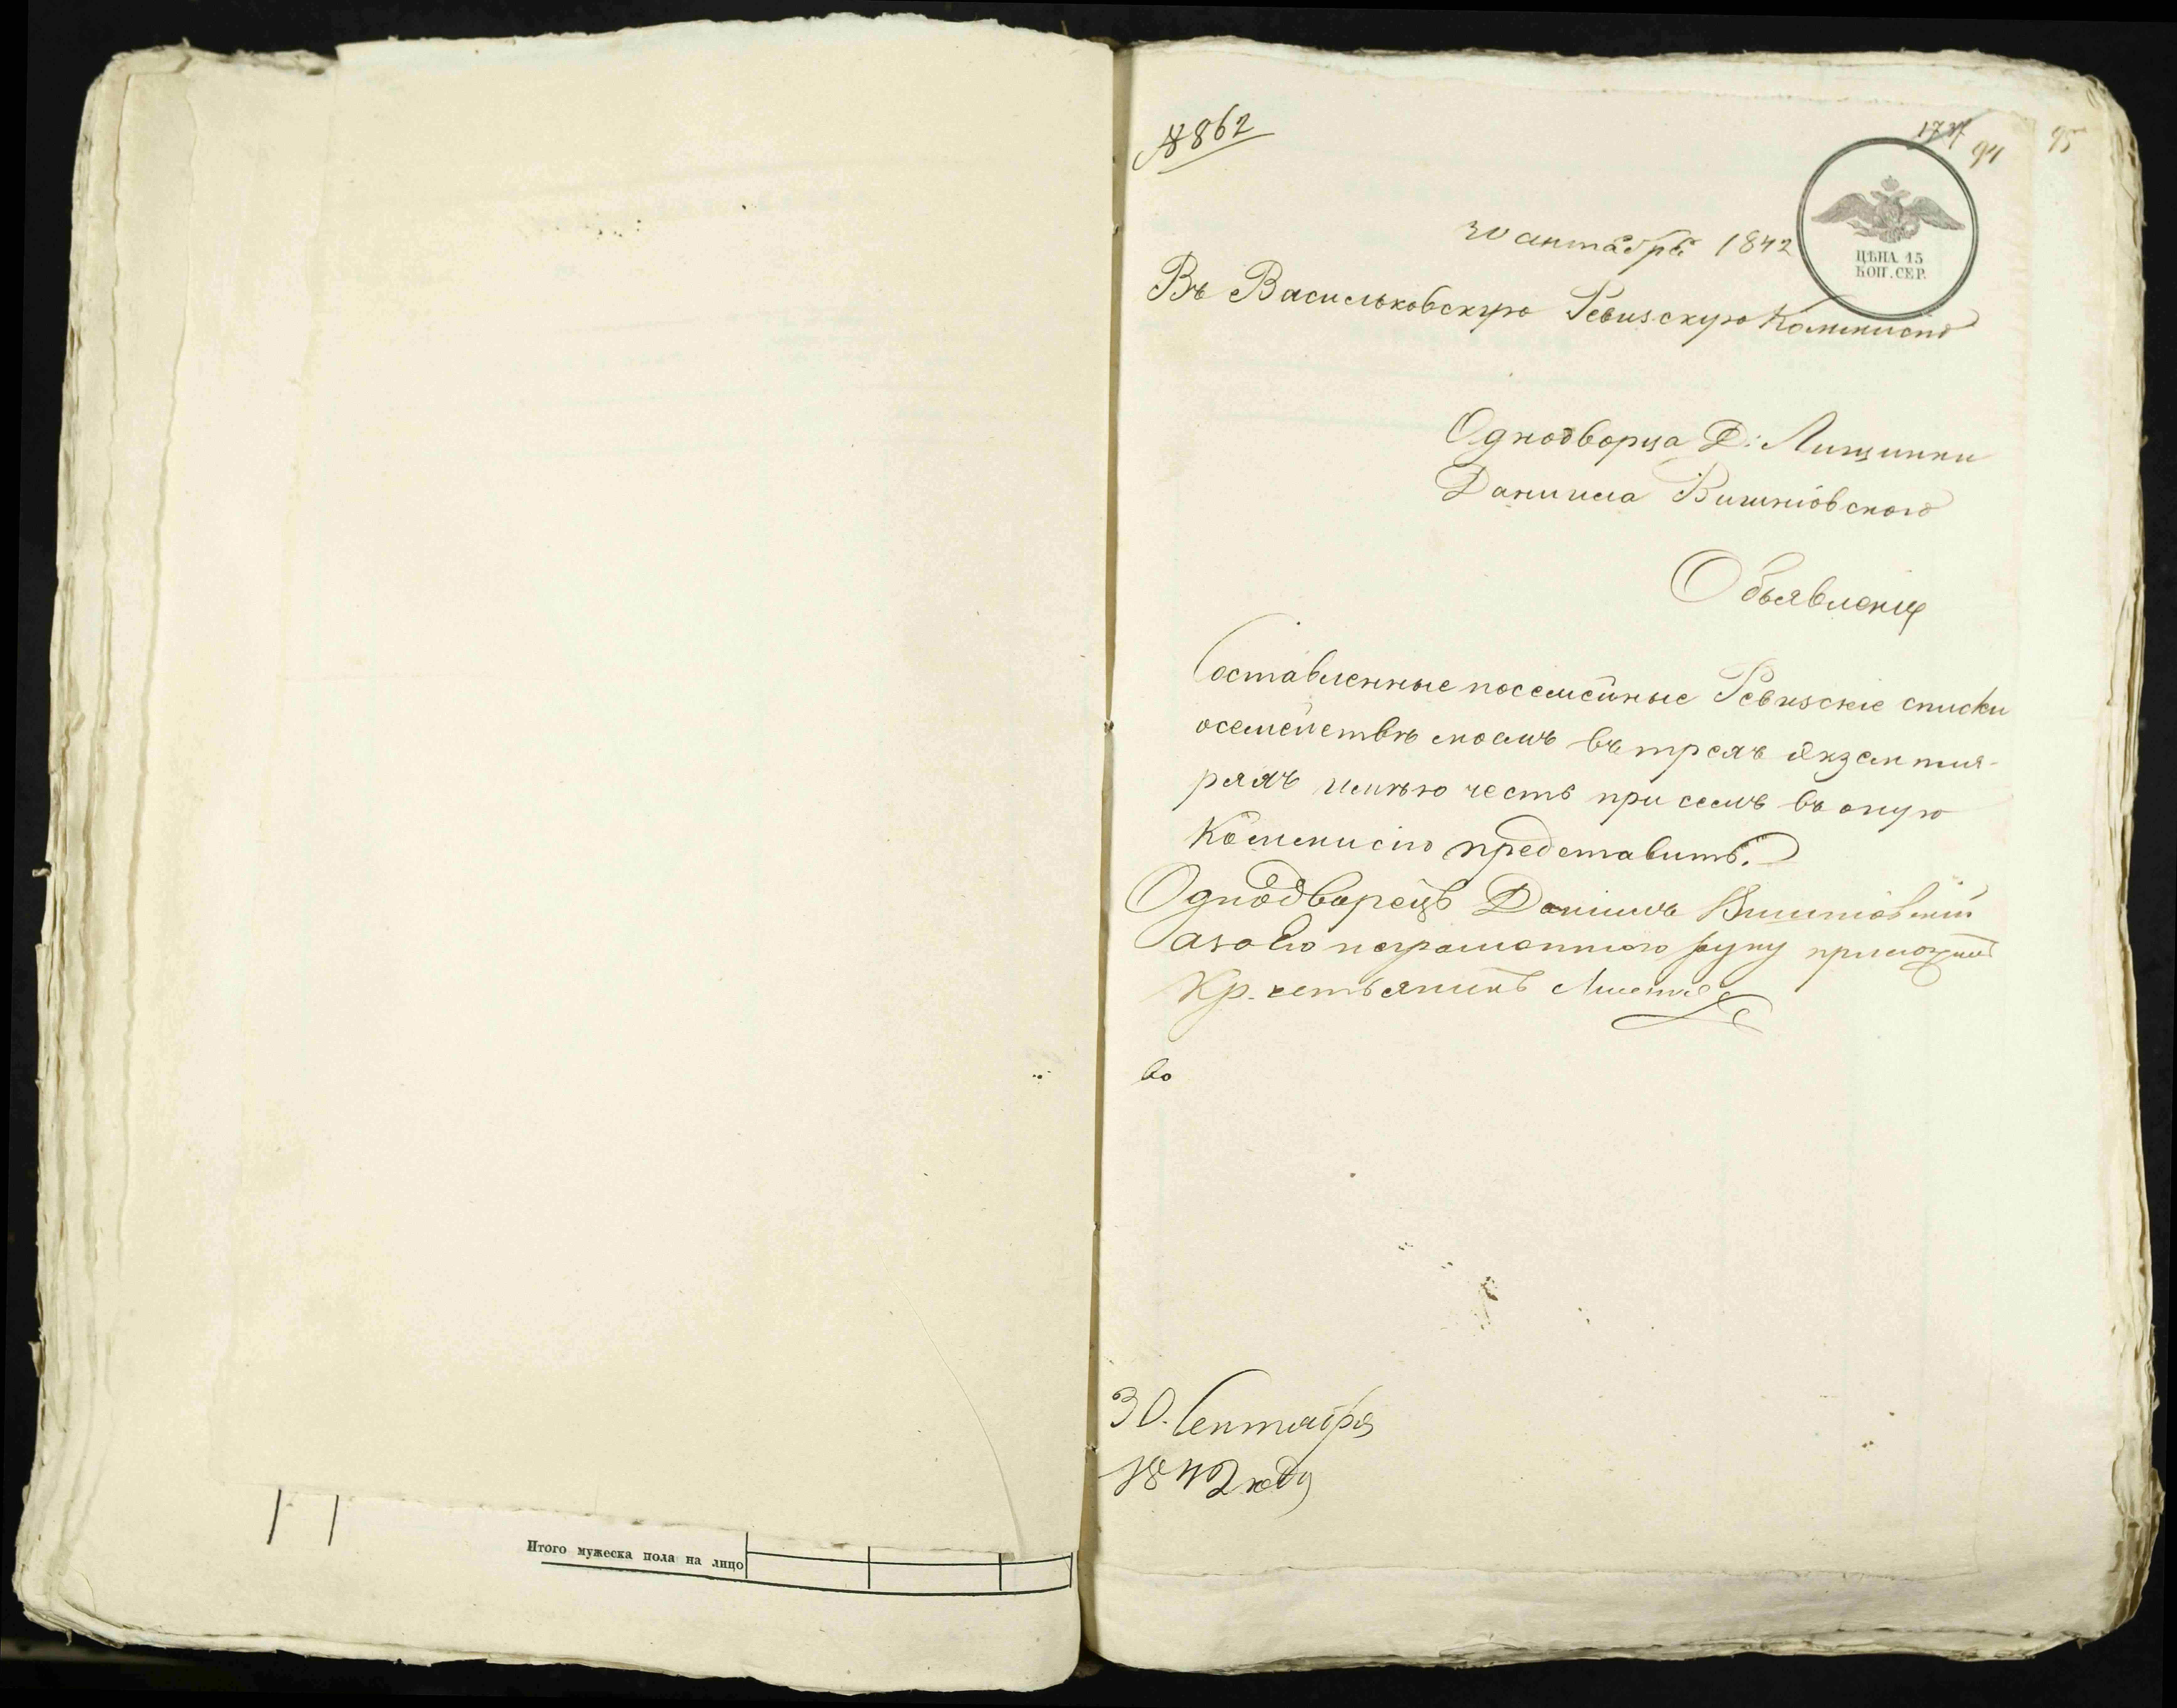 Итого мужеска пола на лицо
№ 862
94
95
ЦѢНА 15
КОП. СЕР.
30 сентября 1842
Въ Васильковскую Ревизскую Коммисію
Однодворца Д: Лищинки
Даниила Вишніовского
Объявленіе
Составленные посемейные Ревизскіе списки
осемействѣ моемъ въ трехъ экземпля-
рахъ имѣю честь при семъ въ оную
Коммисію представить.
Однодворецъ Даніилъ Вишніовскій
а за его неграмотного руку приложилъ
Кр. естьянинъ
во
30. Сентября
1842 года